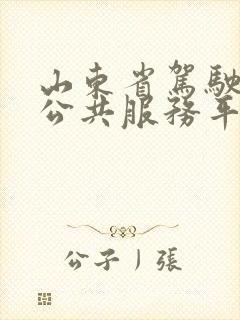 山东省駕駛
公共服務平
公子丨張